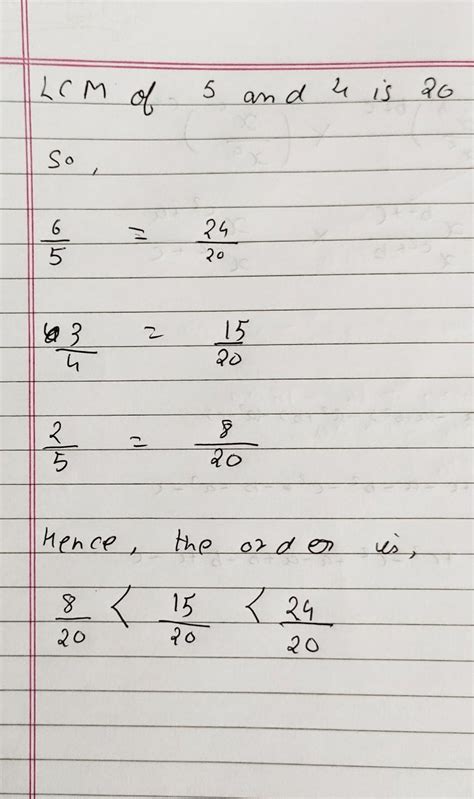 LCM of 5 and 4 is 20
So,
6/5 = 24/20
3/4 = 15/20
2/5 = 8/20
Hence, the order is,
8/20 < 15/20 < 24/20